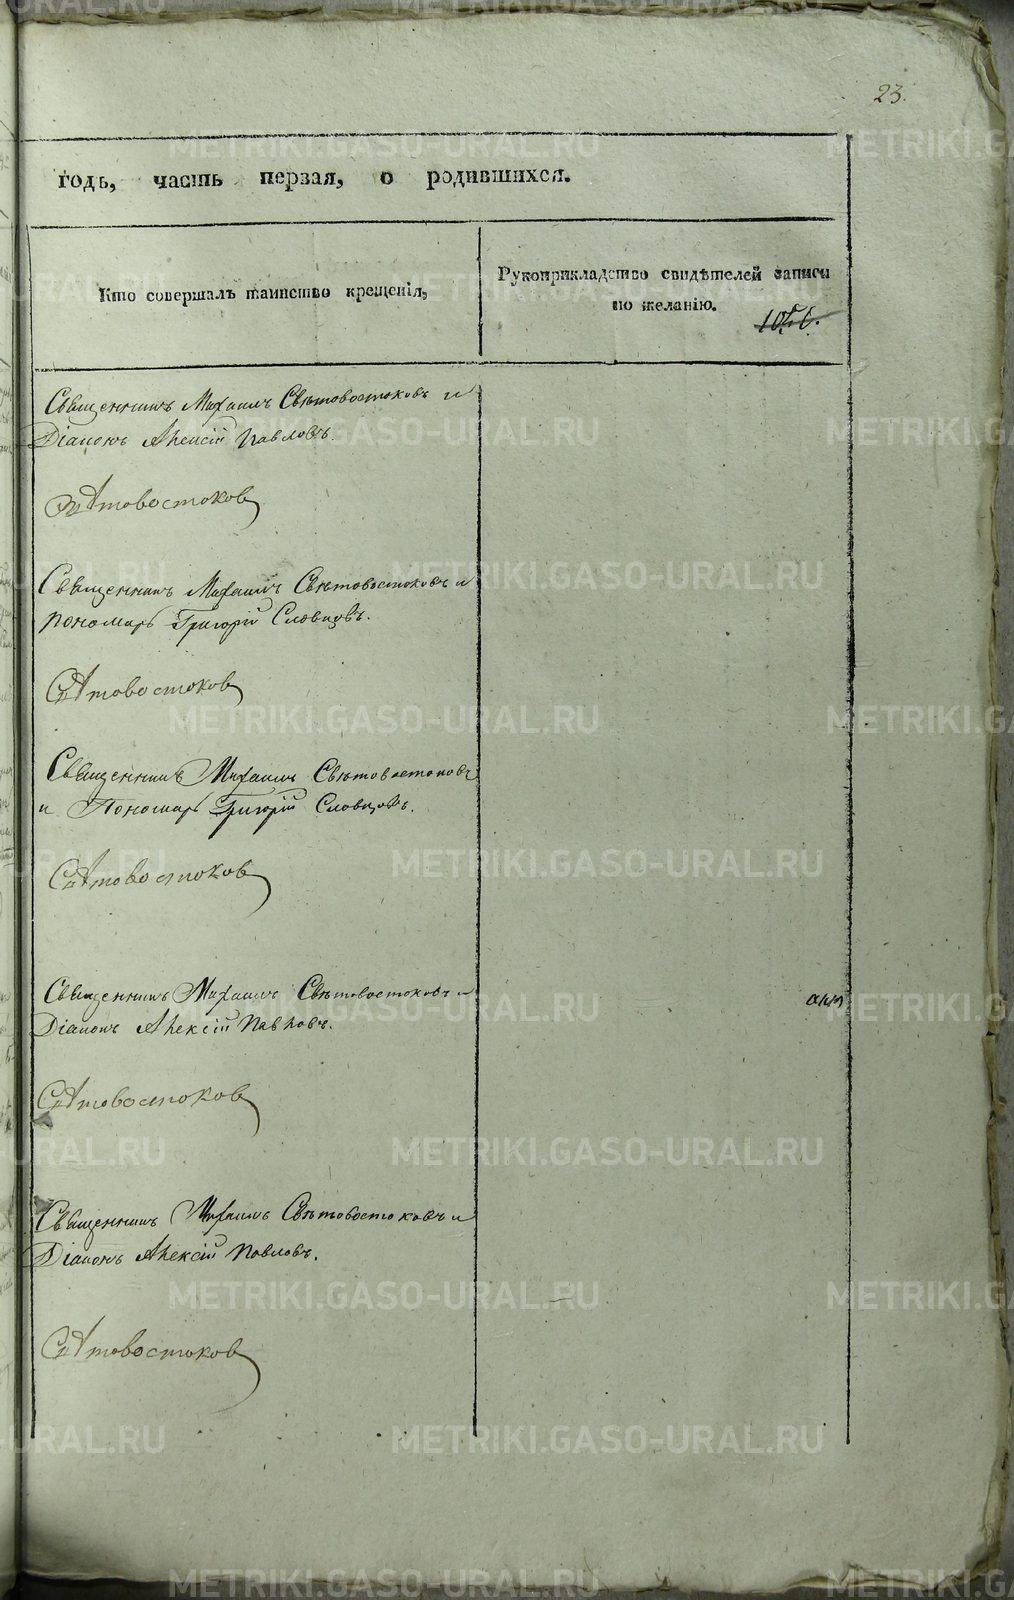 23.
годъ, часть первая, о родившихся.
Кто совершалъ таинство крещенія,
Рукоприкладство свидѣтелей записи
по желанію.
Священникъ Михаилъ Свѣтовостоковъ и
Діаконъ Алексій Павловъ.
Свѣтовостоков
Священникъ Михаилъ Свѣтовостоковъ и
пономарь Григорій Словцовъ.
Свѣтовостоков
Священникъ Михаилъ Свѣтовостоковъ
и Пономарь Григорій Словцовъ.
Свѣтовостоков
Священникъ Михаилъ Свѣтовостоковъ и
Діаконъ Алексій Павловъ.
Свѣтовостоков
Священникъ Михаилъ Свѣтовостоковъ и
Діаконъ Алексій Павловъ.
Свѣтовостоков
METRIKI.GASO-URAL.RU